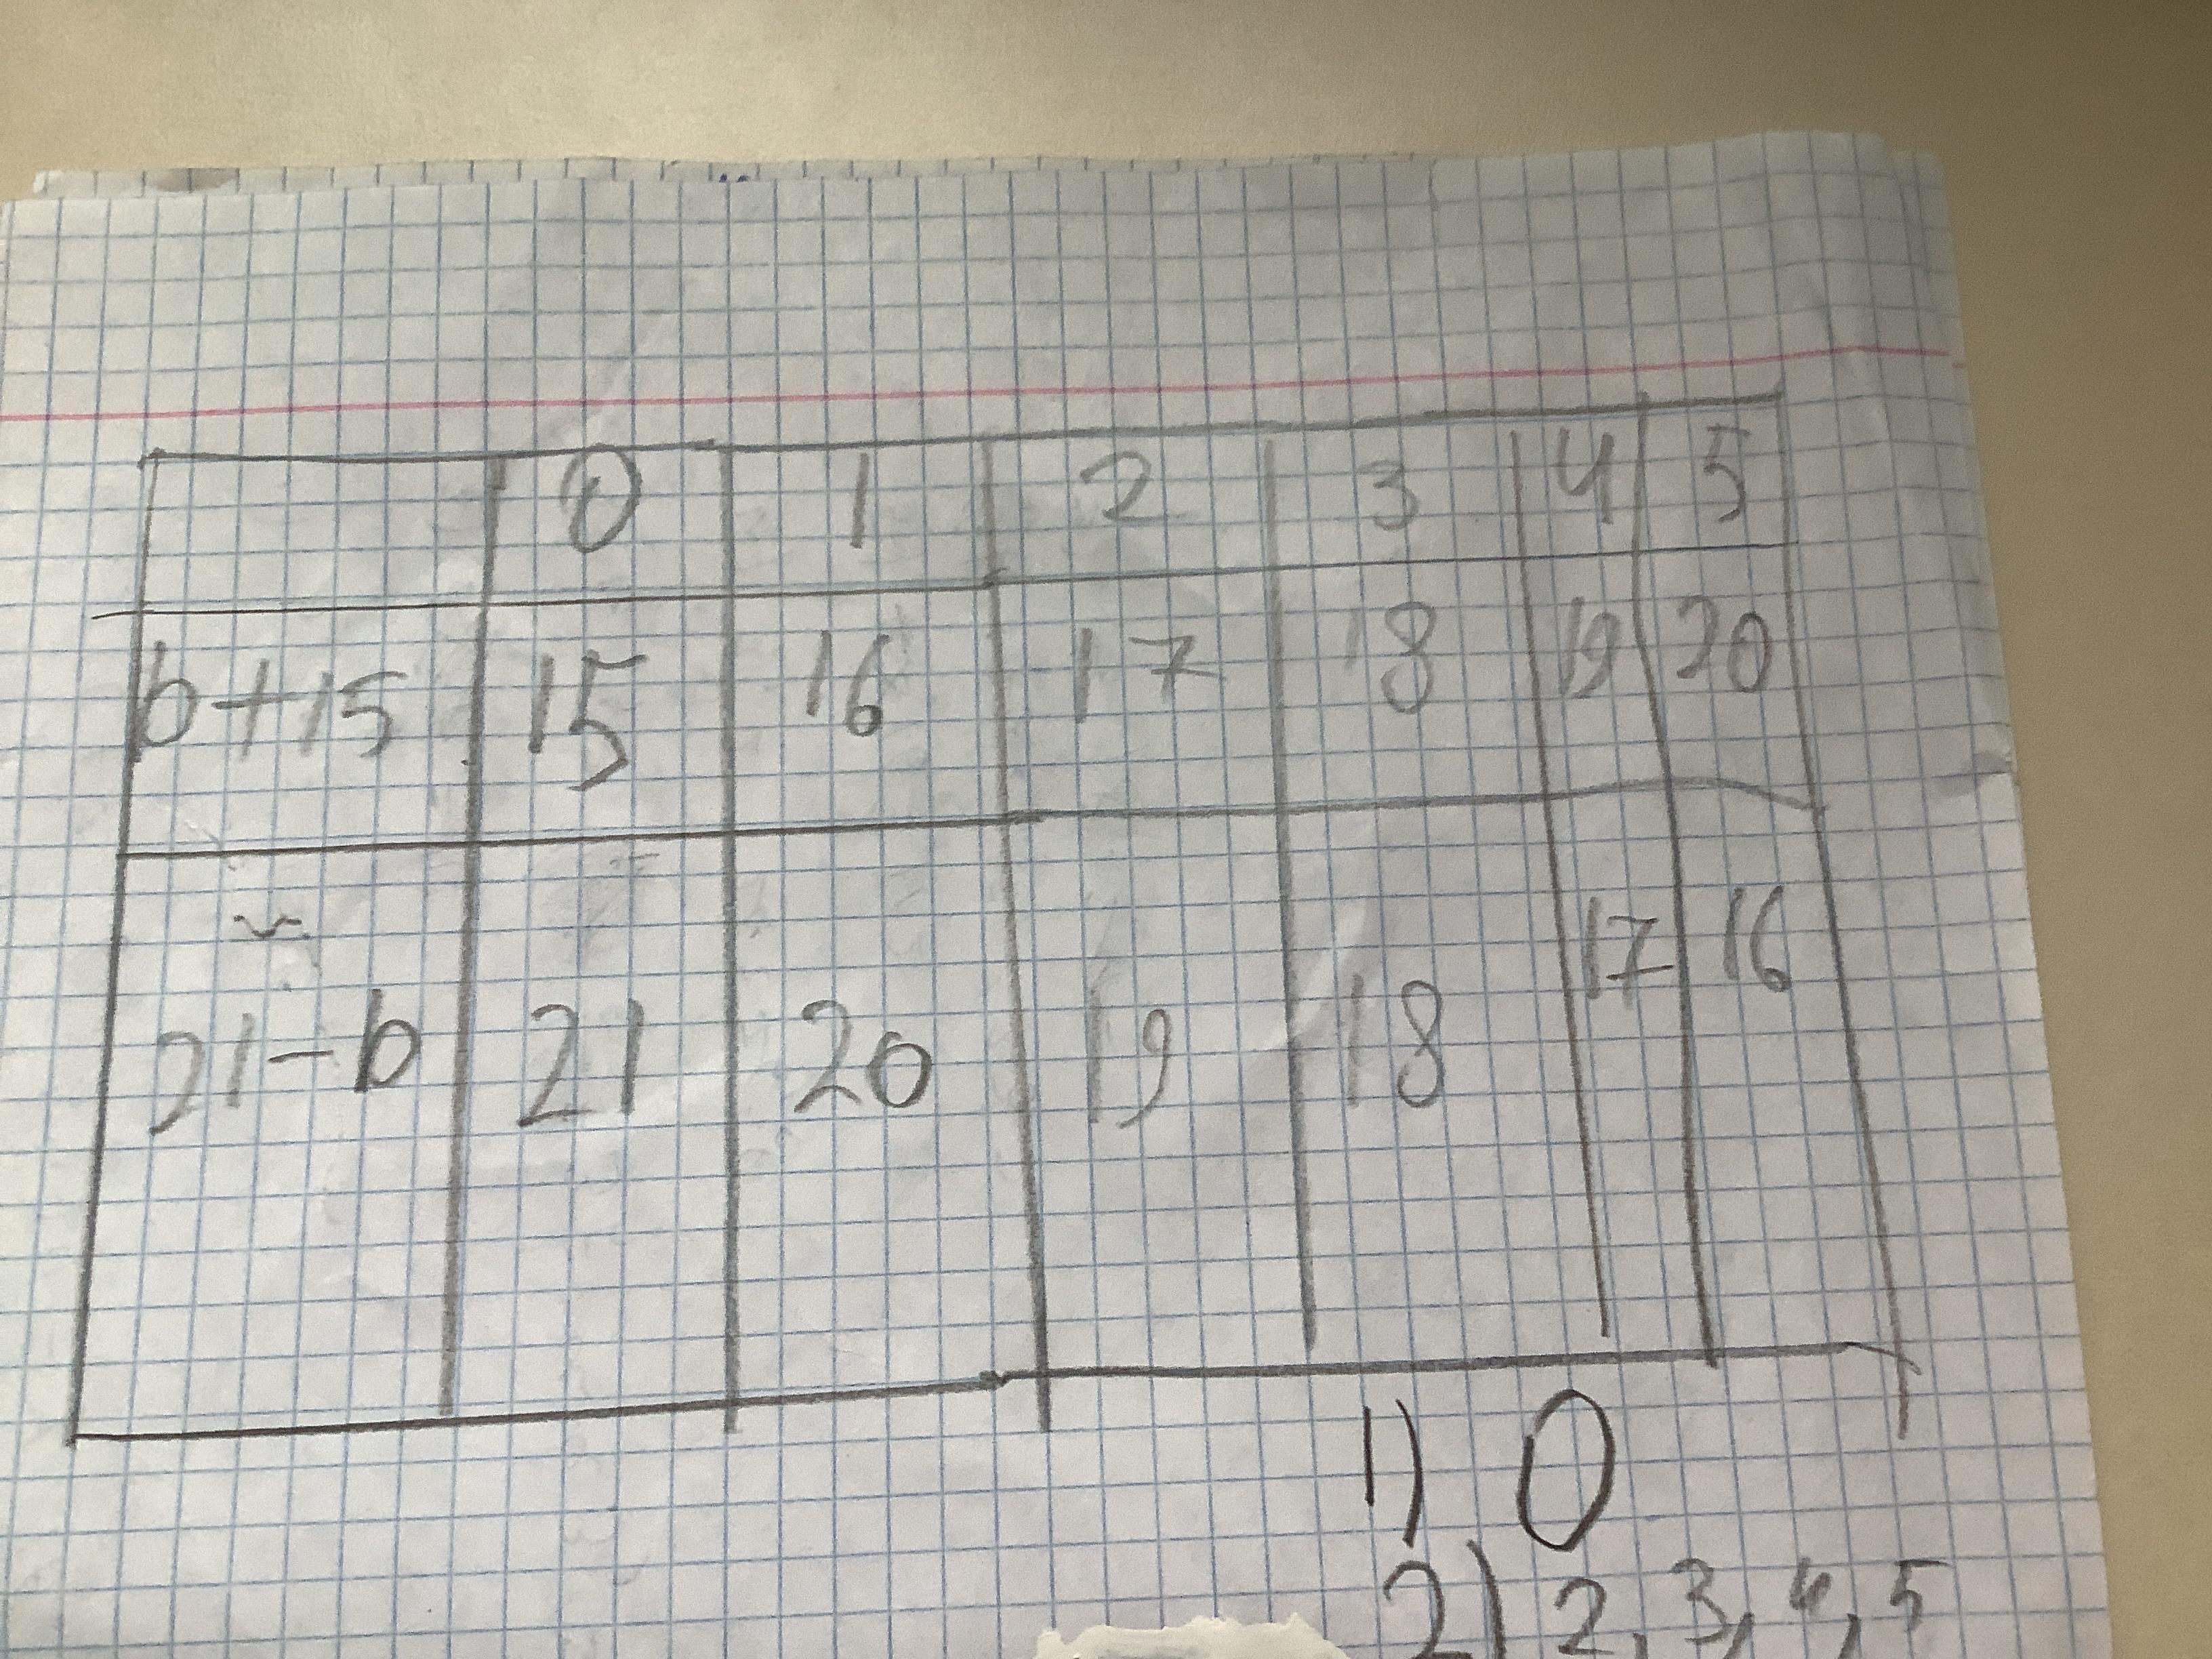 0 1 2 3 4 5
b+15 15 16 17 18 19 20
21-b 21 20 19 18 17 16
1) 0
2) 2, 3, 4, 5